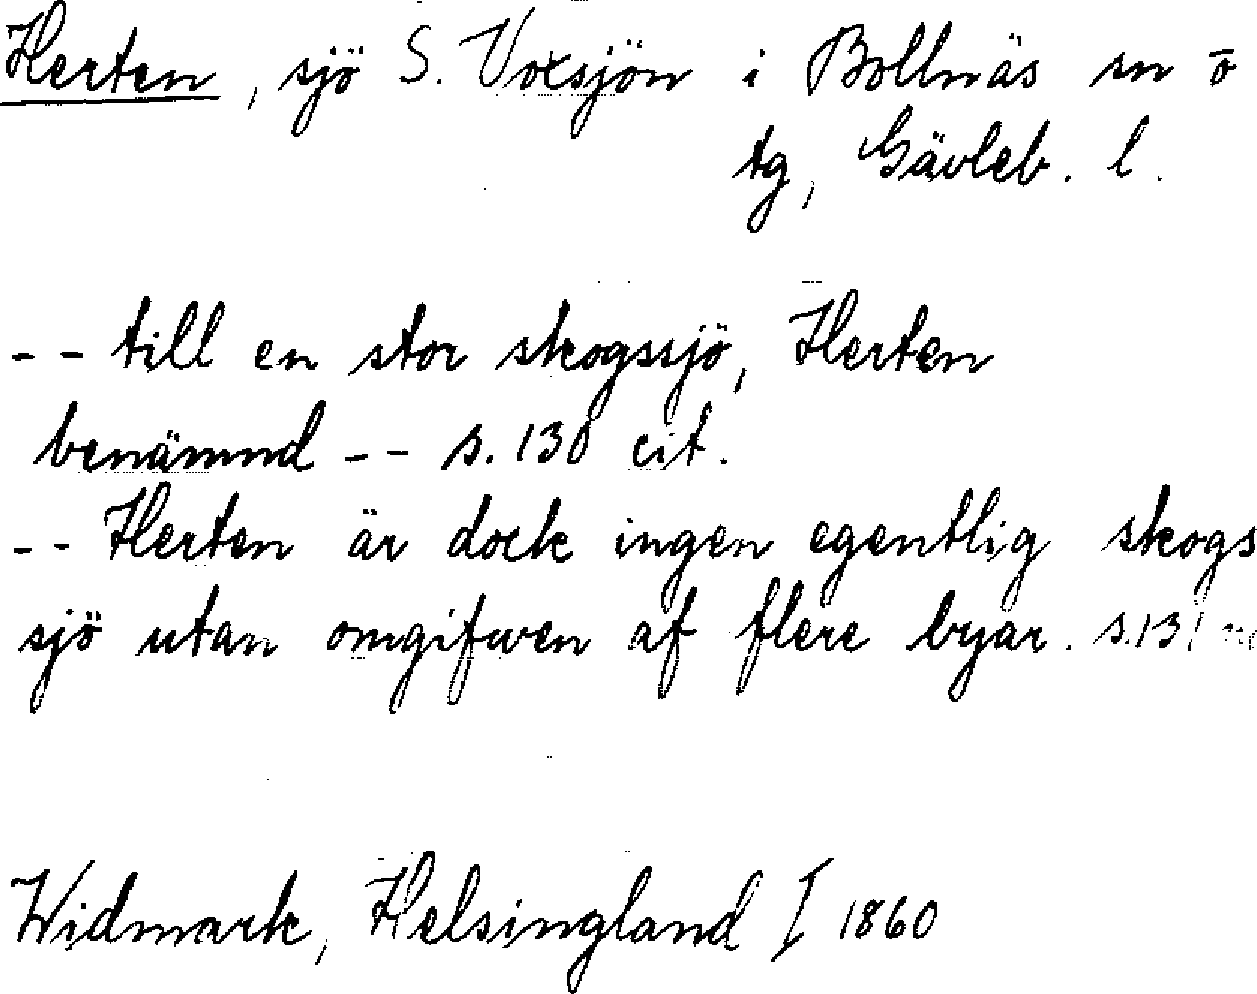 Herten, sjö S. Voxsjön i Bollnäs sn o
tg, Gävleb. l.
-- till en stor skogssjö, Herten
benämnd -- s. 130 cit.
-- Herten är dock ingen egentlig skogs
sjö utan omgifven af flere byar. s. 131
Widmark, Helsingland I 1860